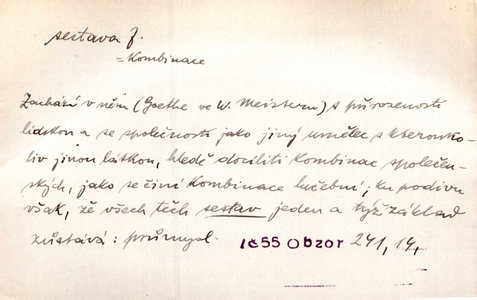 sestava f.
= Kombinace
Zachází v něm (Goethe ve W. Meisteru) s přirozeností
lidskou a se společností jako jiný umělec s kterouko-
liv jinou látkou, hledě docíliti kombinac společen-
ských, jako se činí kombinace lučební; ku podivu
však, že všech těch sestav jeden a týž základ
zůstává: průmysl.
1855 Obzor 241, 14,